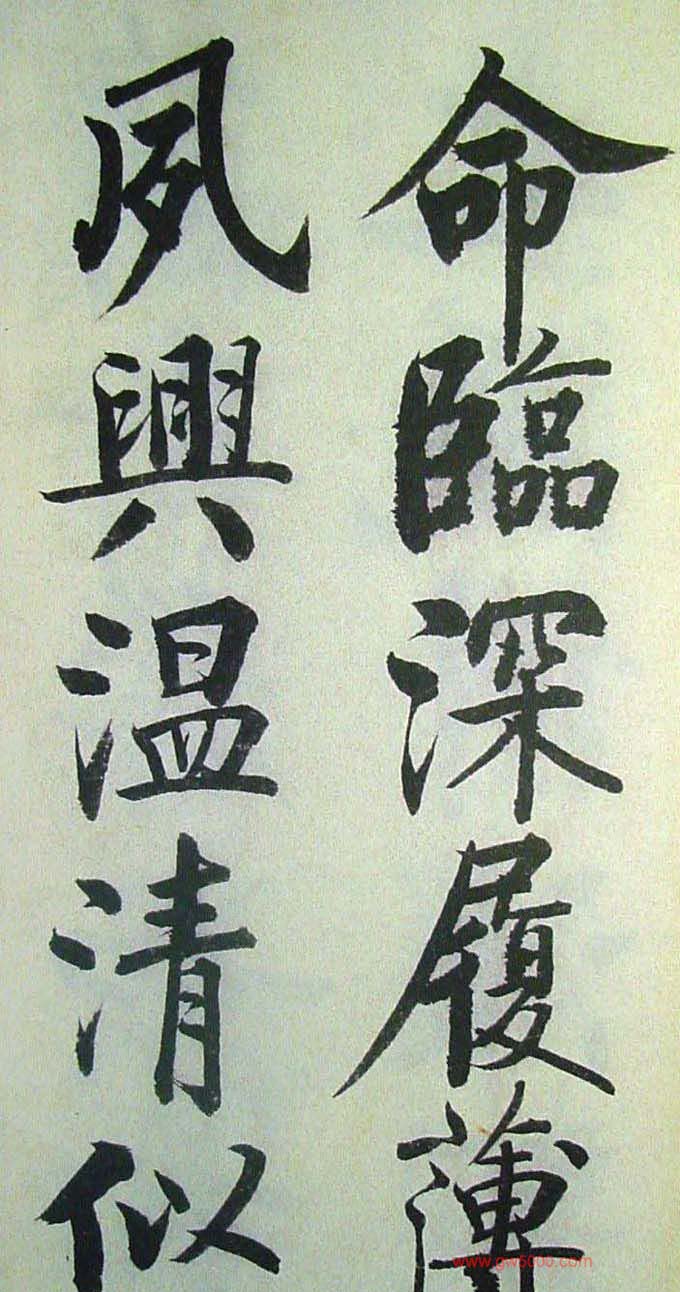 命臨深履薄
夙興温清似
www.gw5000.com